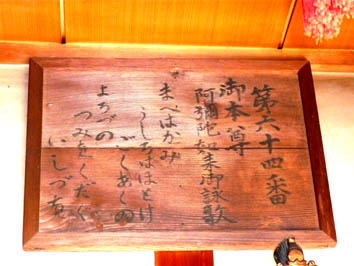 第六十四番
御本尊
阿彌陀如来御詠歌
まへはかみ
うしろはほとけ
ごくあくの
よろづの
つみをくだく
いしづち